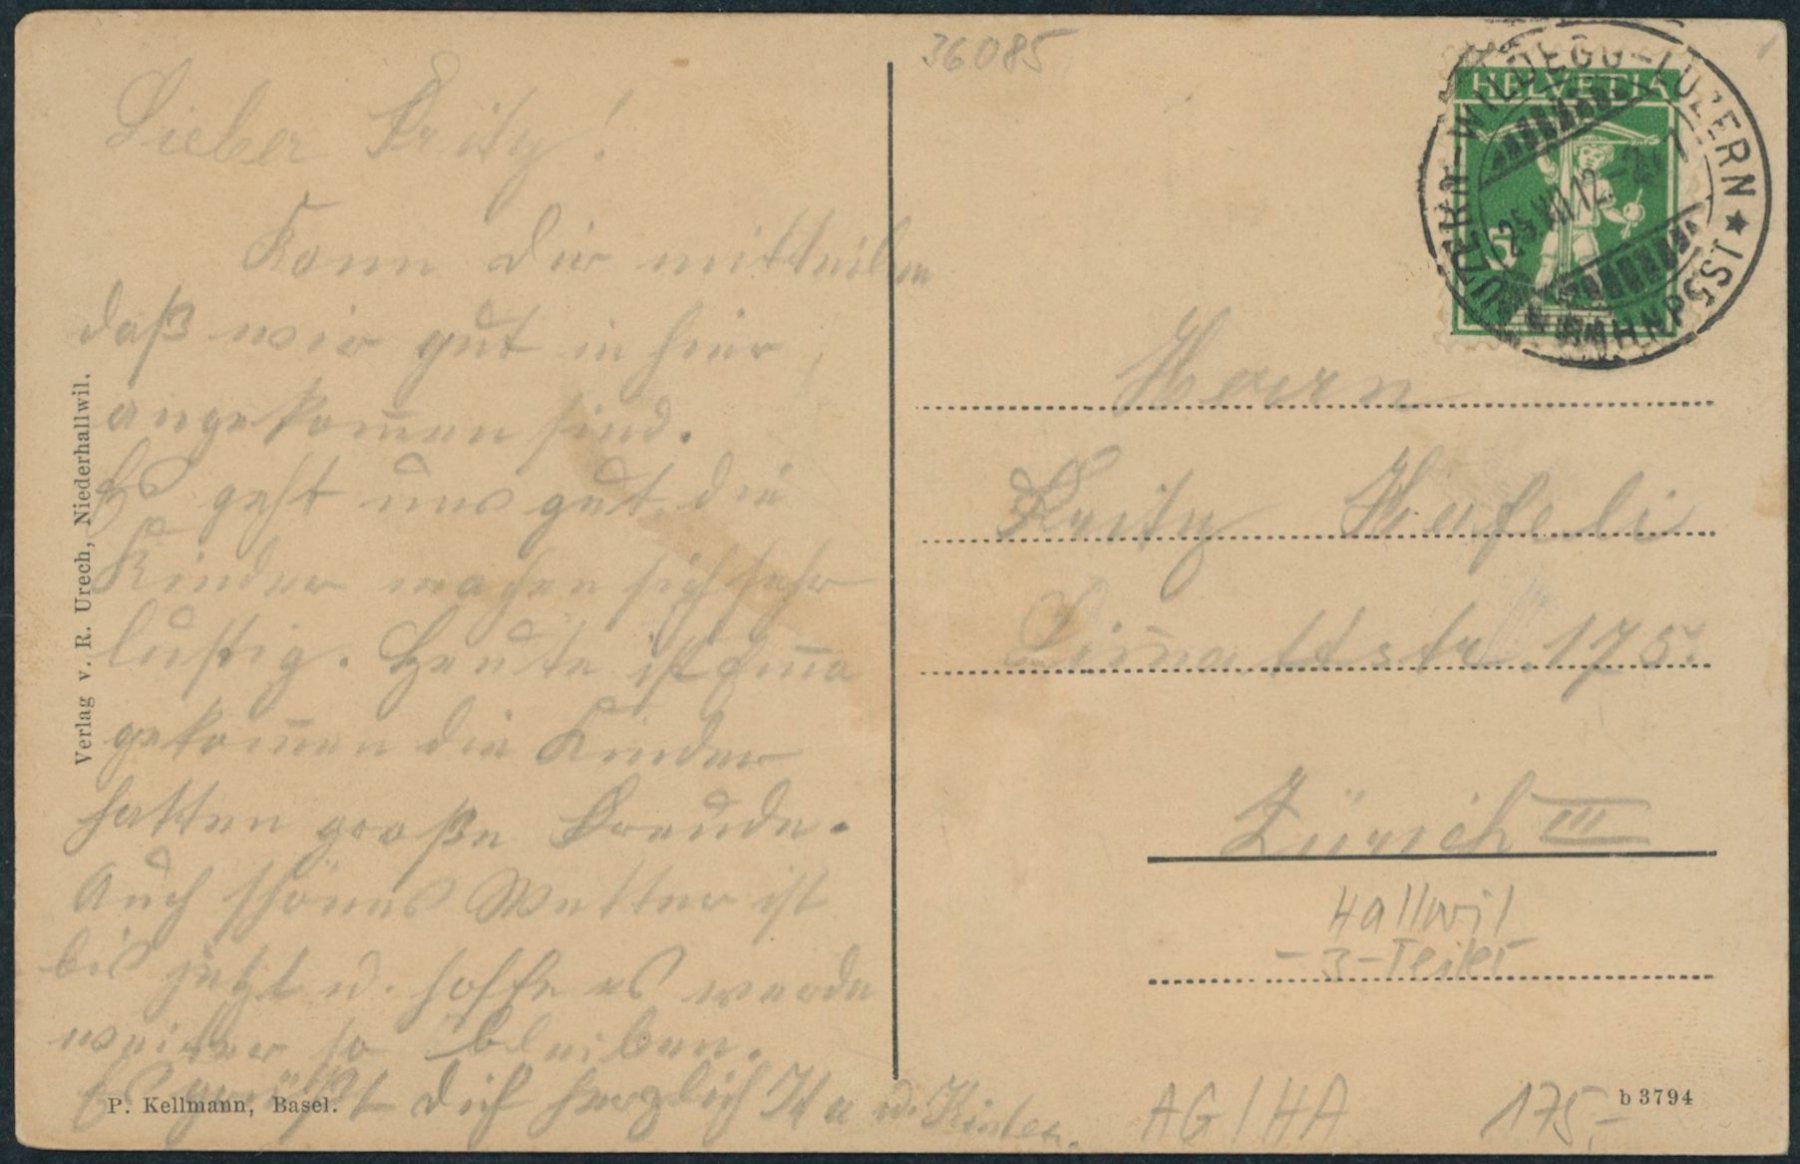 36085
HELVETIA
LUZERN-WILDEGG-LUZERN ★
BAHNPOST
25.VII.12
Lieber Fritz!
Kann dir mitteilen
daß wir gut in hier
angekom̅en sind.
Es geht uns gut, die
Kinder machen sich sehr
lustig. Heute ist Em̅a
gekom̅en die Kinder
hatten große Freude.
Auch schönes Wetter ist
bis jetzt u. hoffe es werde
weiter so bleiben.
Es grüßt dich herzlich u. Kinder.
Herrn
Fritz Hafeli
Lim̅attstr. 175.
Zürich III
Hallwil
- 3-Teiler
AG/HA
175,-
Verlag v. R. Urech, Niederhallwil.
P. Kellmann, Basel.
b 3794